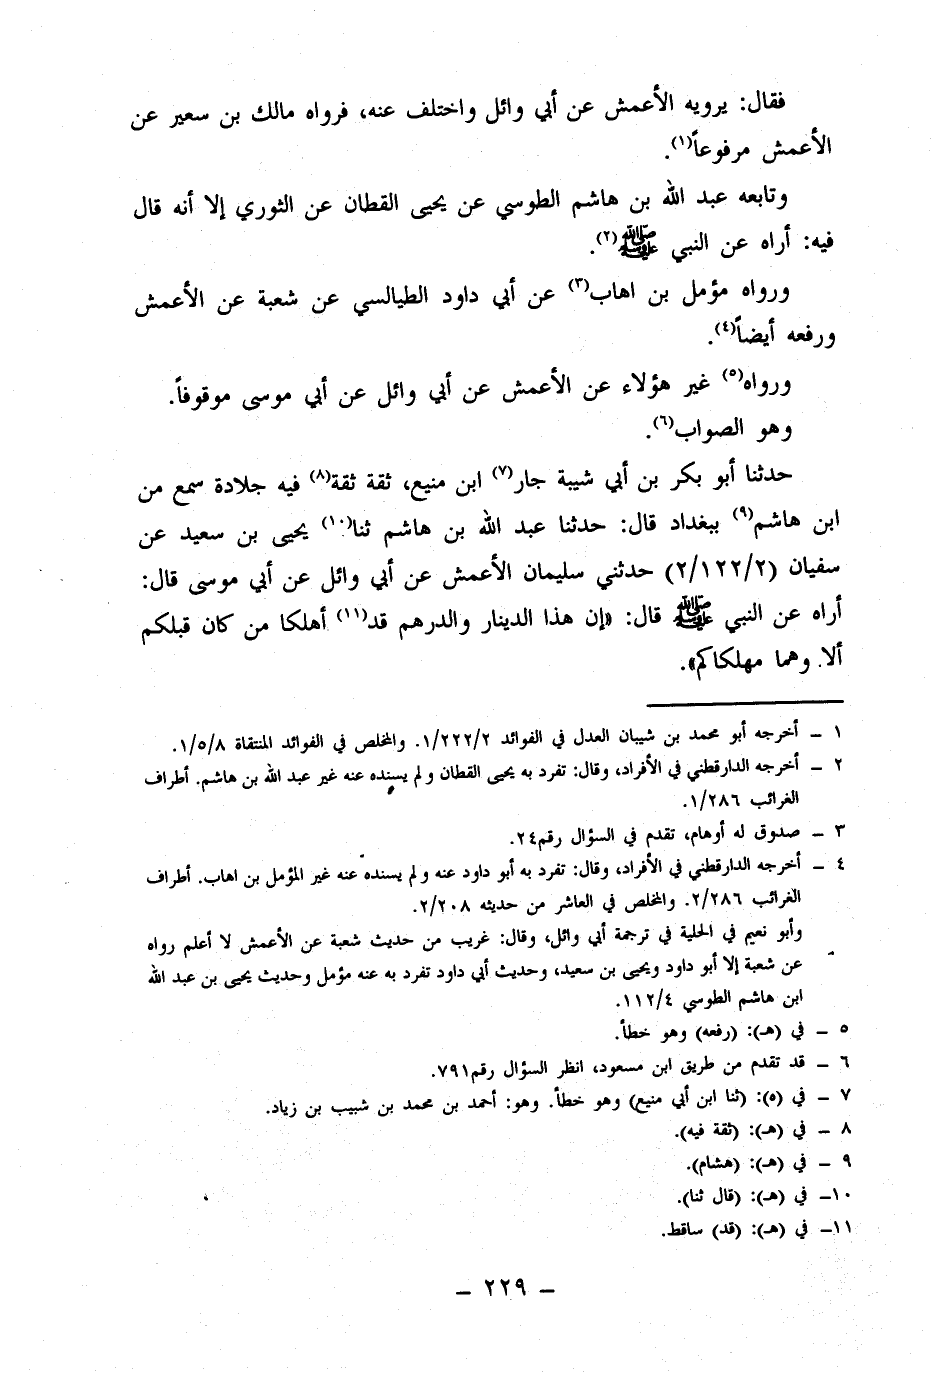 فقال: يرويه الأعمش عن أبي وائل واختلف عنه، فرواه مالك بن سعير عن
الأعمش مرفوعاً(١).
وتابعه عبد الله بن هاشم الطوسي عن يحيى القطان عن الثوري إلا أنه قال
فيه: أراه عن النبي ﷺ(٢).
ورواه مؤمل بن اهاب(٣) عن أبي داود الطيالسي عن شعبة عن الأعمش
ورفعه أيضاً(٤).
ورواه(٥) غير هؤلاء عن الأعمش عن أبي وائل عن أبي موسى موقوفاً.
وهو الصواب(٦).
حدثنا أبو بكر بن أبي شيبة جار(٧) ابن منيع، ثقة ثقة(٨) فيه جلادة سمع من
ابن هاشم(٩) ببغداد قال: حدثنا عبد الله بن هاشم ثنا(١٠) يحيى بن سعيد عن
سفيان (٢/١٢٢/٢) حدثني سليمان الأعمش عن أبي وائل عن أبي موسى قال:
أراه عن النبي ﷺ قال: «إن هذا الدينار والدرهم قد(١١) أهلكا من كان قبلكم
ألا وهما مهلكاكم».
١ ـ أخرجه أبو محمد بن شيبان العدل في الفوائد ١/٢٢٢/٢. والمخلص في الفوائد المنتقاة ١/٥/٨.
٢ ـ أخرجه الدارقطني في الأفراد، وقال: تفرد به يحيى القطان ولم يسنده عنه غير عبد الله بن هاشم. أطراف
الغرائب ١/٢٨٦.
٣ ـ صدوق له أوهام، تقدم في السؤال رقم٢٤.
٤ ـ أخرجه الدارقطني في الأفراد، وقال: تفرد به أبو داود عنه ولم يسنده عنه غير المؤمل بن اهاب. أطراف
الغرائب ٢/٢٨٦. والمخلص في العاشر من حديثه ٢/٢٠٨.
وأبو نعيم في الحلية في ترجمة أبي وائل، وقال: غريب من حديث شعبة عن الأعمش لا أعلم رواه
عن شعبة إلا أبو داود ويحيى بن سعيد، وحديث أبي داود تفرد به عنه مؤمل وحديث يحيى بن عبد الله
ابن هاشم الطوسي ١١٢/٤.
٥ ـ في (هـ): (رفعه) وهو خطأ.
٦ ـ قد تقدم من طريق ابن مسعود، انظر السؤال رقم٧٩١.
٧ ـ في (٥): (ثنا ابن أبي منيع) وهو خطأ. وهو: أحمد بن محمد بن شبيب بن زياد.
٨ ـ في (هـ): (ثقة فيه).
٩ ـ في (هـ): (هشام).
١٠ـ في (هـ): (قال ثنا).
١١ـ في (هـ): (قد) ساقط.
ـ ٢٢٩ ـ